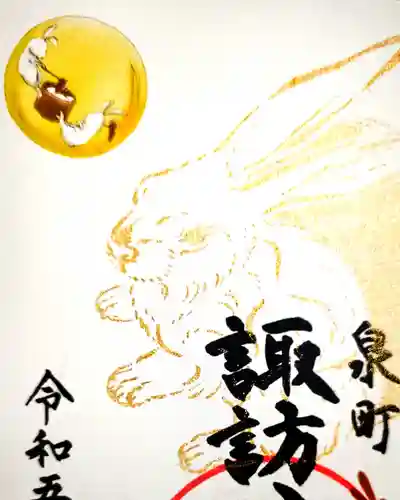 泉町
諏訪
令和五